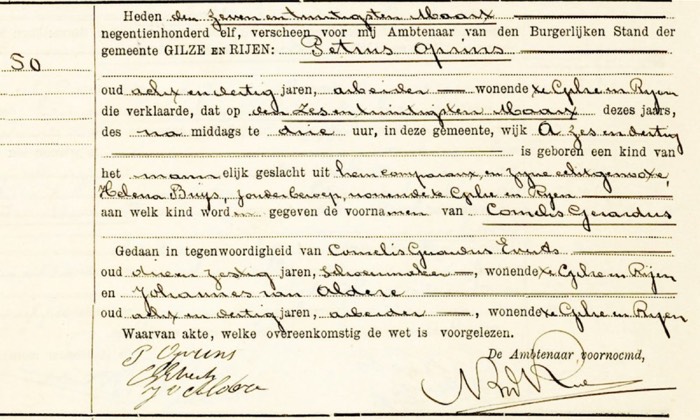 Heden den zeven en twintigsten Maart
negentienhonderd elf, verscheen voor mij Ambtenaar van den Burgerlijken Stand der
gemeente GILZE EN RIJEN: Petrus
50
oud acht en dertig jaren, arbeider, wonende te Gilze en Rijen
die verklaarde, dat op den zes en twintigsten Maart dezes jaars,
des na middags te drie uur, in deze gemeente, wijk A zes en dertig
is geboren een kind van
het mannelijk geslacht uit hem comparant en zijne echtgenoote,
Helena Buijs, zonder beroep, wonende te Gilze en Rijen
aan welk kind worden gegeven de voornamen van Cornelis Gerardus
Gedaan in tegenwoordigheid van Cornelis Gerardus
oud drie en zestig jaren, schoenmaker, wonende te Gilze en Rijen
en Johannes van Aldere
oud acht en dertig jaren, arbeider, wonende te Gilze en Rijen
Waarvan akte, welke overeenkomstig de wet is voorgelezen.
De Ambtenaar voornoemd,